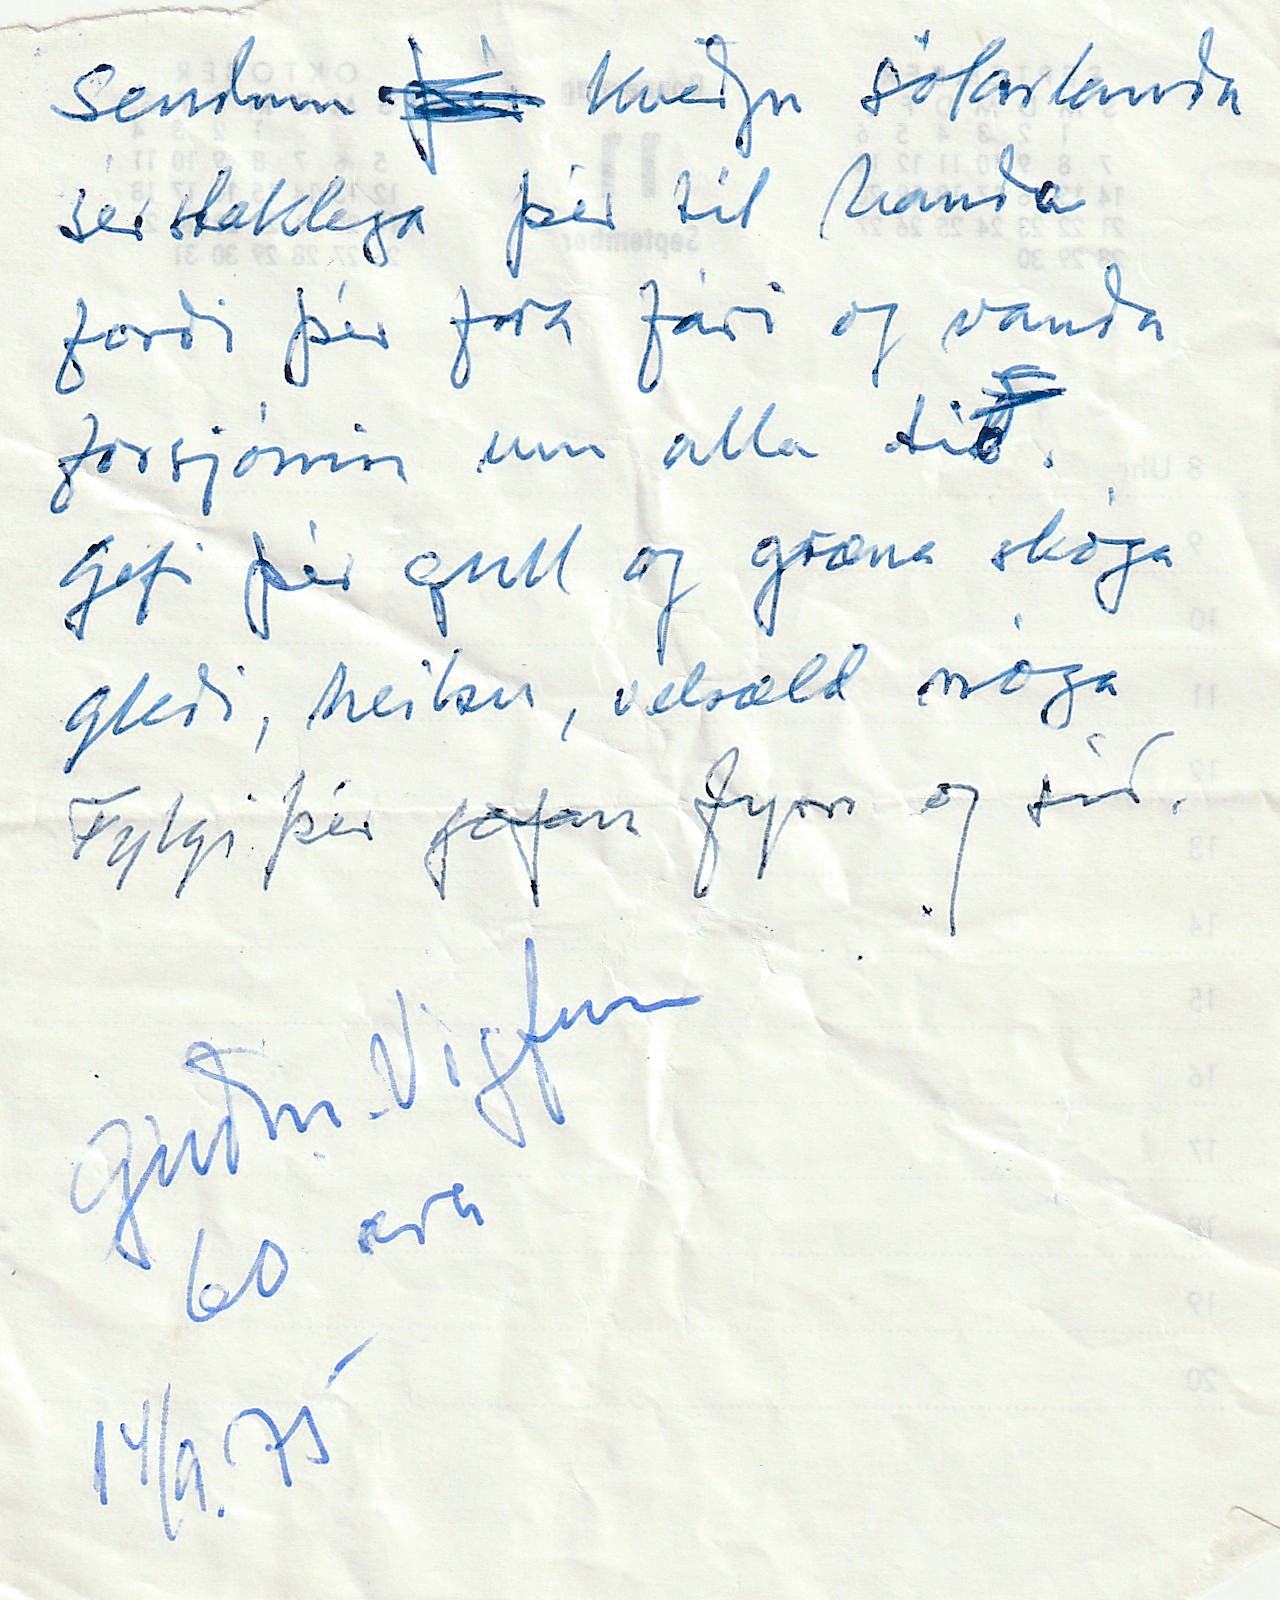 Sendum kveðju sólarlanda
sérstaklega þér til handa
forði þér frá fári og vanda
forsjónin um alla tíð.
Gefi þér gull og græna skóga
gleði, heilsu, velsæld nóga
Fylgi þér gæfan fyrr og síð.
Guðm. Vigfúss
60 ára
14/9. 75